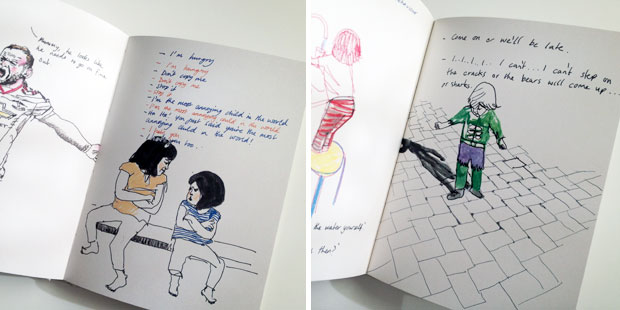 - Mommy, he looks like
he needs to go on time
out
- I'm hungry
- I'm hungry
- Don't copy me
- Don't copy me
- Stop it
- Stop it
- I'm the most annoying child in the world
- I'm the most annoying child in the world
- Ha Ha! You just said you're the most
annoying child in the world!
too...
- Come on or we'll be late.
- I..I..I.. I can't... I can't step on
the cracks or the bears will come up...
sharks.
the water yourself'
then?'